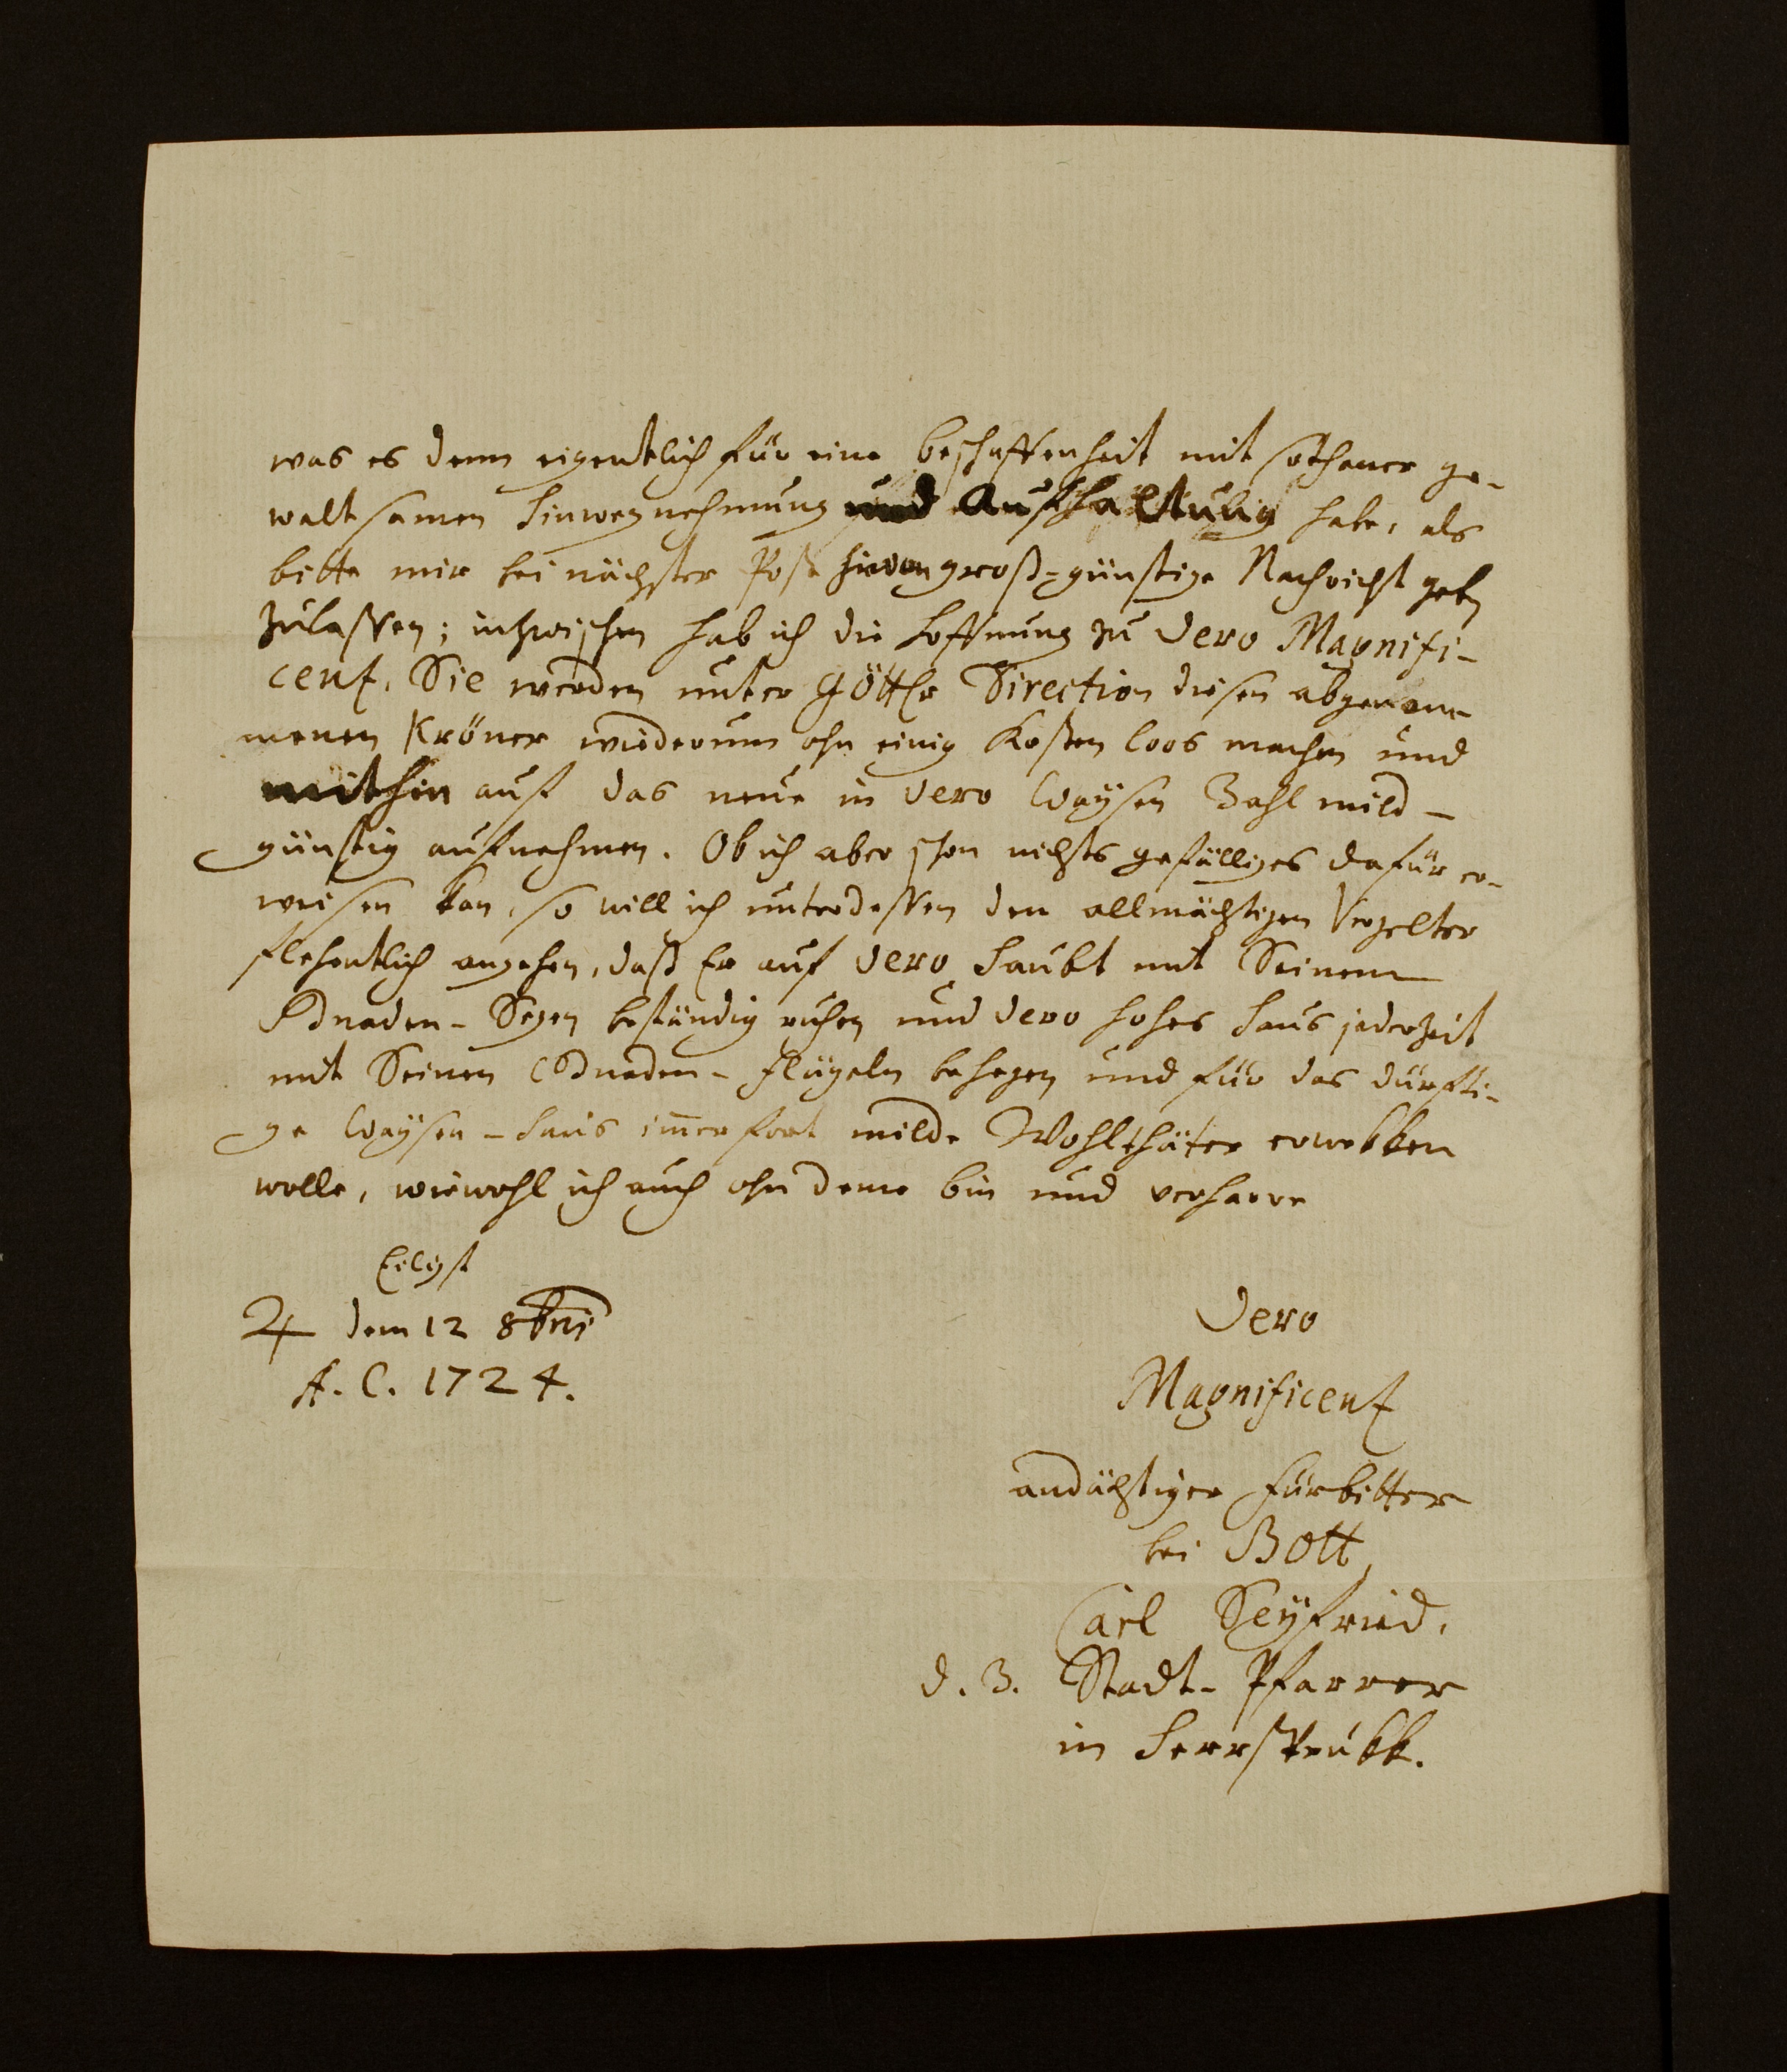 was es denn eigentlich für eine beschaffenheit mit sothaner ge-
waltsamen Hinwegnehmung und Aufhaltung habe, als
bitte mir bei nächster Post hievon groß-günstige Nachricht geben
zulassen; inzwischen hab ich die Hoffnung zu Dero Magnifi-
cenz, Sie werden unter Göttlr Direction diesen abgenom-
menen Kröner wiederum ohn einig Kosten loos machen und
mithin auf das neue in Dero Waÿsen Zahl mild-
günstig aufnehmen. Ob ich aber schon nichts gefälliges dafür er-
weisen kan, so will ich unterdessen den allmächtigen Vergelter
flehentlich angehen, daß Er auf Dero Haubt mit Seinem
Gnaden-Segen beständig ruhen und Dero hohes Haus jederzeit
mit Seinen Gnaden-Flügeln behegen und für das dürfti-
ge Waÿsen-Haus im̅erfort milde Wohlthäter erwekken
wolle, wiewohl ich auch ohn deme bin und verharre
Eiligst
♃ dem 12 8bris
A. C. 1724.
Dero
Magnificenz
andächtiger Fürbitter
bei Gott,
Carl Seÿfried,
d. Z. Stadt-Pfarrer
in Herrsprukk.